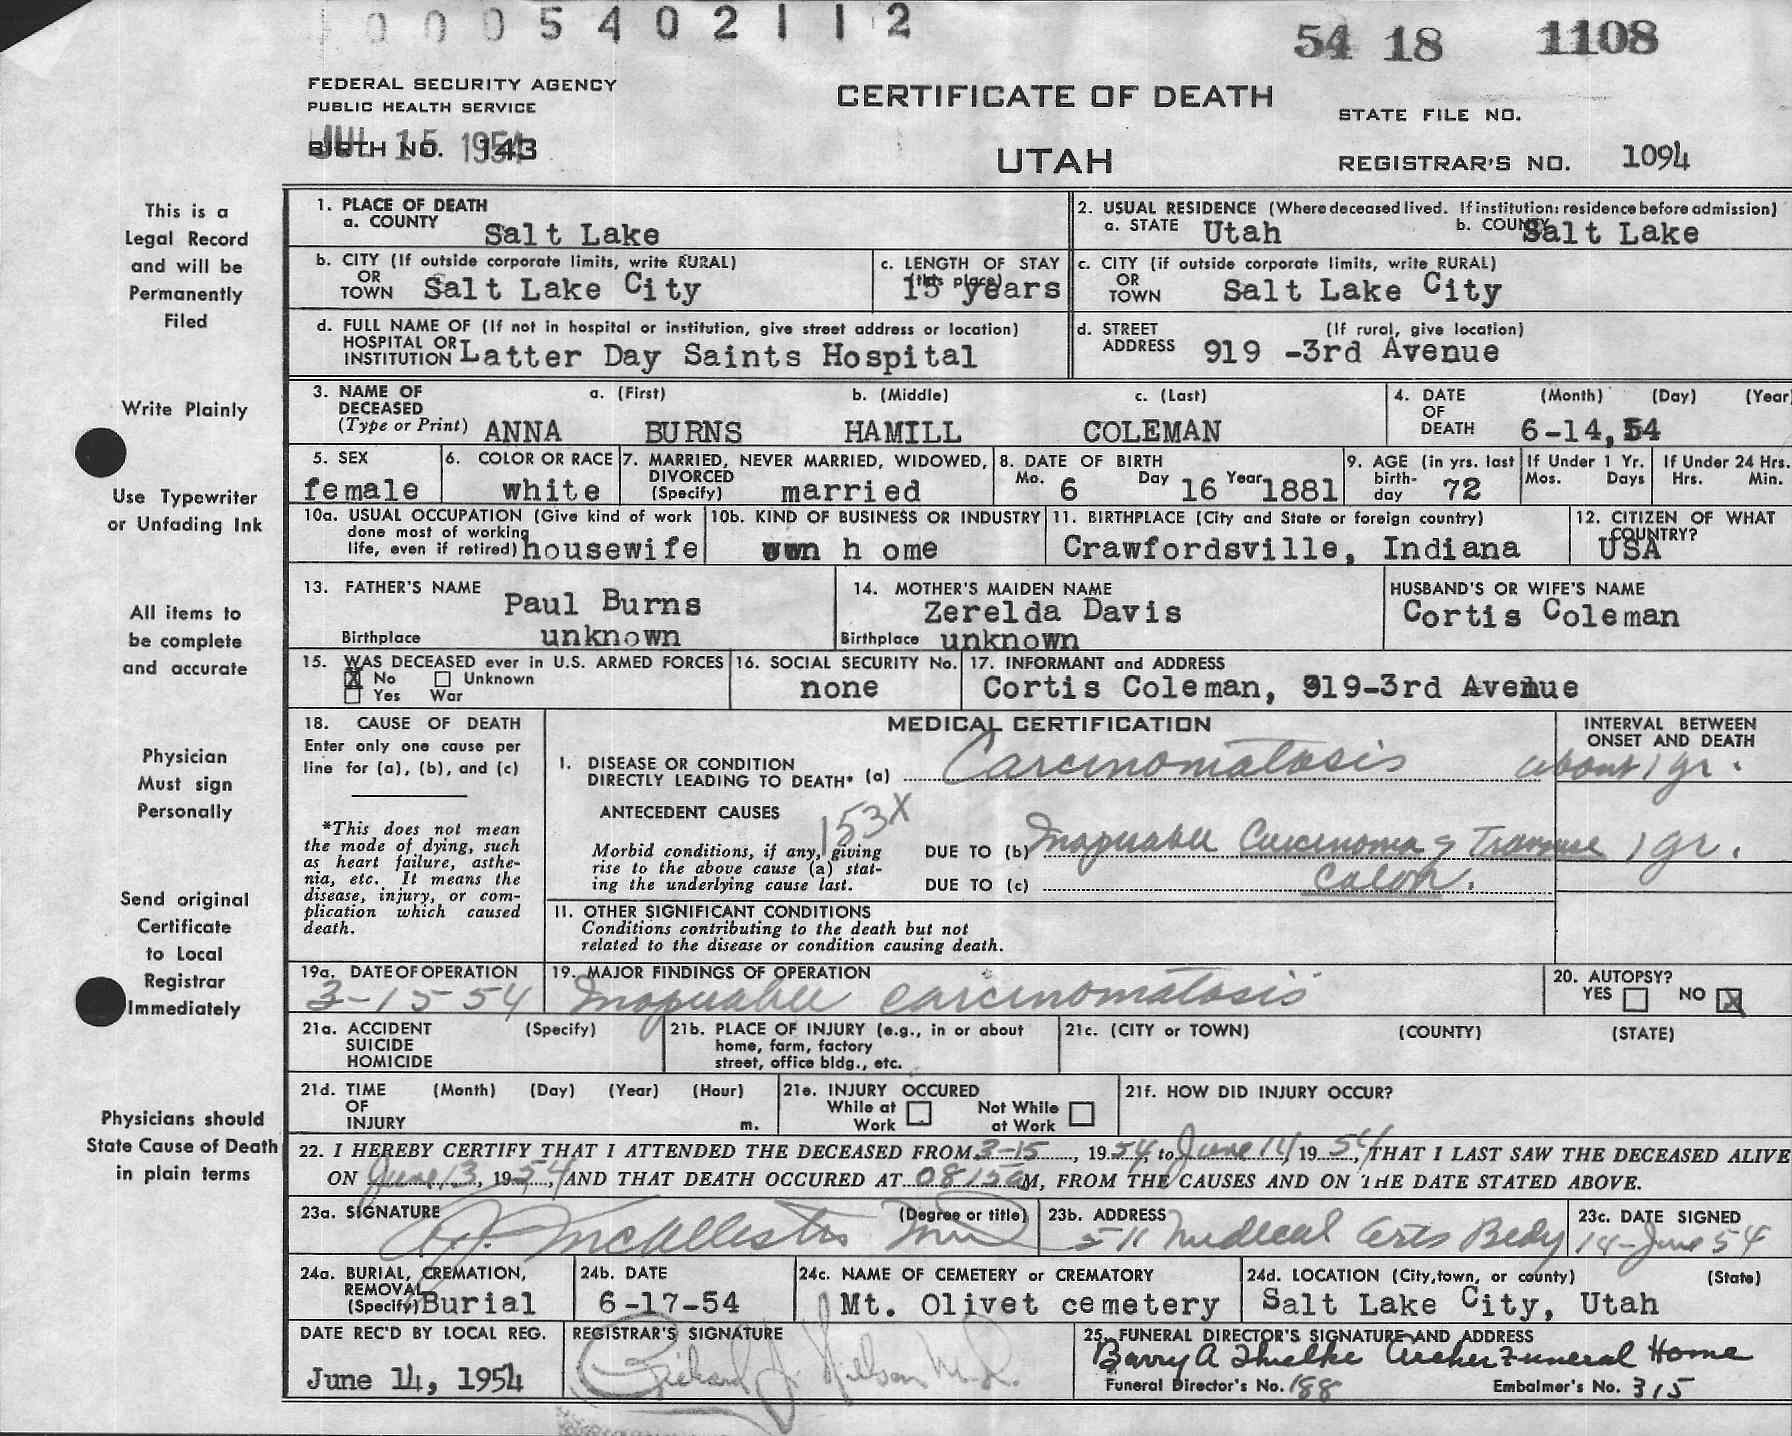 0 0 0 5 4 0 2 1 1 2
54 18 1108
FEDERAL SECURITY AGENCY
PUBLIC HEALTH SERVICE
CERTIFICATE OF DEATH
STATE FILE NO.
BIRTH NO. 143
JUL 15 1954
UTAH
REGISTRAR'S NO. 1094
This is a
Legal Record
and will be
Permanently
Filed
Write Plainly
Use Typewriter
or Unfading Ink
All items to
be complete
and accurate
Physician
Must sign
Personally
Send original
Certificate
to Local
Registrar
Immediately
Physicians should
State Cause of Death
in plain terms
1. PLACE OF DEATH
a. COUNTY Salt Lake
2. USUAL RESIDENCE (Where deceased lived. If institution: residence before admission)
a. STATE Utah b. COUNTY Salt Lake
b. CITY (If outside corporate limits, write RURAL)
OR
TOWN Salt Lake City
c. LENGTH OF STAY
(this place)
15 years
c. CITY (if outside corporate limits, write RURAL)
OR
TOWN Salt Lake City
d. FULL NAME OF (If not in hospital or institution, give street address or location)
HOSPITAL OR
INSTITUTION Latter Day Saints Hospital
d. STREET (If rural, give location)
ADDRESS 919 -3rd Avenue
3. NAME OF a. (First) b. (Middle) c. (Last)
DECEASED
(Type or Print) ANNA BURNS HAMILL COLEMAN
4. DATE (Month) (Day) (Year
OF
DEATH 6-14,54
5. SEX
female
6. COLOR OR RACE
white
7. MARRIED, NEVER MARRIED, WIDOWED,
DIVORCED
(Specify) married
8. DATE OF BIRTH
Mo. 6 Day 16 Year 1881
9. AGE (in yrs. last
birth-
day 72
If Under 1 Yr.
Mos. Days
If Under 24 Hrs.
Hrs. Min.
10a. USUAL OCCUPATION (Give kind of work
done most of working
life, even if retired) housewife
10b. KIND OF BUSINESS OR INDUSTRY
own h ome
11. BIRTHPLACE (City and State or foreign country)
Crawfordsville, Indiana
12. CITIZEN OF WHAT
COUNTRY?
USA
13. FATHER'S NAME Paul Burns
Birthplace unknown
14. MOTHER'S MAIDEN NAME
Zerelda Davis
Birthplace unknown
HUSBAND'S OR WIFE'S NAME
Cortis Coleman
15. WAS DECEASED ever in U.S. ARMED FORCES
X No Unknown
Yes War
16. SOCIAL SECURITY No.
none
17. INFORMANT and ADDRESS
Cortis Coleman, 919-3rd Avenue
18. CAUSE OF DEATH
Enter only one cause per
line for (a), (b), and (c)
*This does not mean
the mode of dying, such
as heart failure, asthe-
nia, etc. It means the
disease, injury, or com-
plication which caused
death.
MEDICAL CERTIFICATION
INTERVAL BETWEEN
ONSET AND DEATH
I. DISEASE OR CONDITION
DIRECTLY LEADING TO DEATH* (a) Carcinomatosis about 1 yr.
ANTECEDENT CAUSES
153X
Morbid conditions, if any, giving
rise to the above cause (a) stat-
ing the underlying cause last.
DUE TO (b) Inoperable Carcinoma of Transverse 1 yr.
DUE TO (c) Colon.
II. OTHER SIGNIFICANT CONDITIONS
Conditions contributing to the death but not
related to the disease or condition causing death.
19a. DATE OF OPERATION
3-15-54
19. MAJOR FINDINGS OF OPERATION
Inoperable carcinomatosis
20. AUTOPSY?
YES NO X
21a. ACCIDENT (Specify)
SUICIDE
HOMICIDE
21b. PLACE OF INJURY (e.g., in or about
home, farm, factory
street, office bldg., etc.
21c. (CITY or TOWN) (COUNTY) (STATE)
21d. TIME (Month) (Day) (Year) (Hour)
OF
INJURY m.
21e. INJURY OCCURED
While at Work Not While at Work
21f. HOW DID INJURY OCCUR?
22. I HEREBY CERTIFY THAT I ATTENDED THE DECEASED FROM 3-15, 1954, to June 14, 1954, THAT I LAST SAW THE DECEASED ALIVE
ON June 13, 1954, AND THAT DEATH OCCURED AT 0815 aM, FROM THE CAUSES AND ON THE DATE STATED ABOVE.
23a. SIGNATURE (Degree or title)
McAllester MD
23b. ADDRESS
511 Medical Arts Bldg
23c. DATE SIGNED
14-June 54
24a. BURIAL, CREMATION,
REMOVAL
(Specify) Burial
24b. DATE
6-17-54
24c. NAME OF CEMETERY or CREMATORY
Mt. Olivet cemetery
24d. LOCATION (City, town, or county) (State)
Salt Lake City, Utah
DATE REC'D BY LOCAL REG.
June 14, 1954
REGISTRAR'S SIGNATURE
Richard J. Nelson M.D.
25. FUNERAL DIRECTOR'S SIGNATURE AND ADDRESS
Barry A Thielke Archer Funeral Home
Funeral Director's No. 188 Embalmer's No. 315